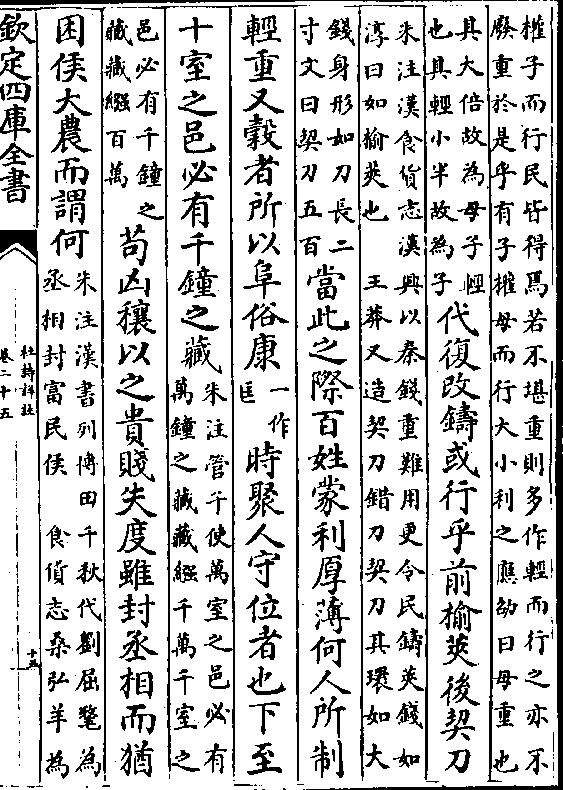 權子而行民皆得焉若不堪重則多作輕而行之亦不
廢重於是乎有子權母而行大小利之應劭曰母重也
其大倍故為母子輕
也其輕小半故為子
代復改鑄或行乎前榆莢後契刀
朱注漢食貨志漢興以秦錢重難用更令民鑄莢錢如
淳曰如榆莢也　王莽又造契刀錯刀契刀其環如大
錢身形如刀長二
寸文曰契刀五百
當此之際百姓蒙利厚薄何人所制
輕重又糓者所以阜俗康
一作
匡
時聚人守位者也下至
十室之邑必有千鐘之藏
朱注管子使萬室之邑必有
萬鐘之藏藏繦千萬千室之
邑必有千鐘之
藏藏繦百萬
苟凶穰以之貴賤失度雖封丞相而猶
困侯大農而謂何
朱注漢書列傅田千秋代劉屈氂為
丞相封富民侯　食貨志桑弘羊為
欽定四庫全書
杜詩詳註
卷二十五
十五